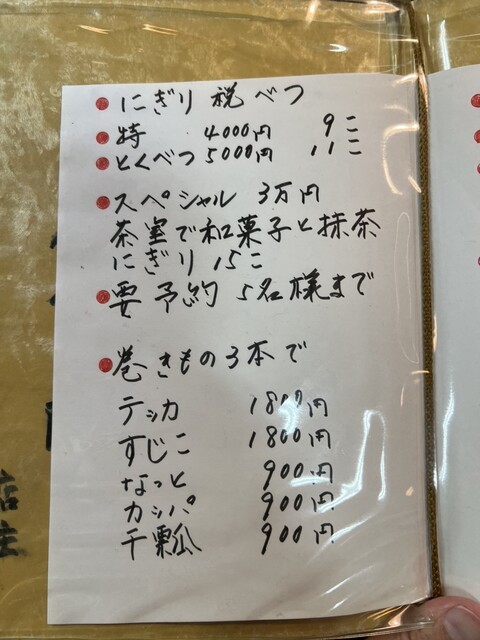 にぎり 税べつ
特 4000円 9こ
とくべつ 5000円 11こ
スペシャル 3万円
茶室で和菓子と抹茶
にぎり 15こ
要予約 5名様まで
巻きもの3本で
テッカ 1800円
すじこ 1800円
なっと 900円
カッパ 900円
干瓢 900円
店